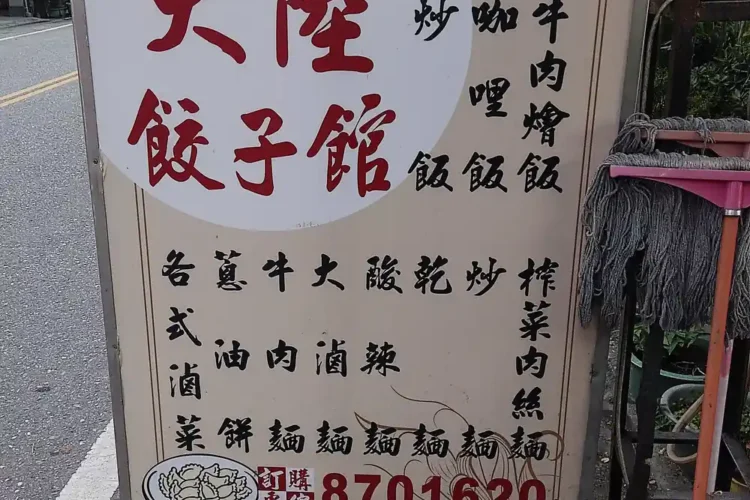 大陸
餃子館
牛肉燴飯
咖哩飯
炒飯
榨菜肉絲麵
炒麵
乾麵
酸辣麵
大滷麵
牛肉麵
蔥油餅
各式滷菜
訂購
8701620